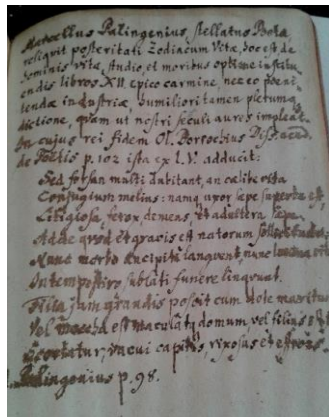 Marcellus Palingenius, stellatus Poeta
reliqvit posteritati Zodiacum Vitæ, hoc est de
hominis vita, studio, et moribus optime institu
endis libros XII. epico carmine, nec eo poeni
tendæ industriæ, humiliori tamen plerumq
dictione, qvam ut nostri seculi aures impleat.
In cujus rei fidem Ol. Borrichius Diss. acad.
de Poetis p. 102 ista ex l. V. adducit:
Sed forsan multi dubitant, an cælibe vita
Conjugium melius: namq uxor sæpe superba est,
Litigiosa, ferox, demens, et adultera sæpe.
Adde qvod et gravis est natorum sollicitudo
Nunc morbo ancipiti langvent, nunc
Intempestivo, sublati funere linqvunt.
Filia jam grandis poscit cum dote maritum
Vel mœcha est maculatq domum, vel filius est
vacui capitis, rixosus et
Palingenius p. 98.